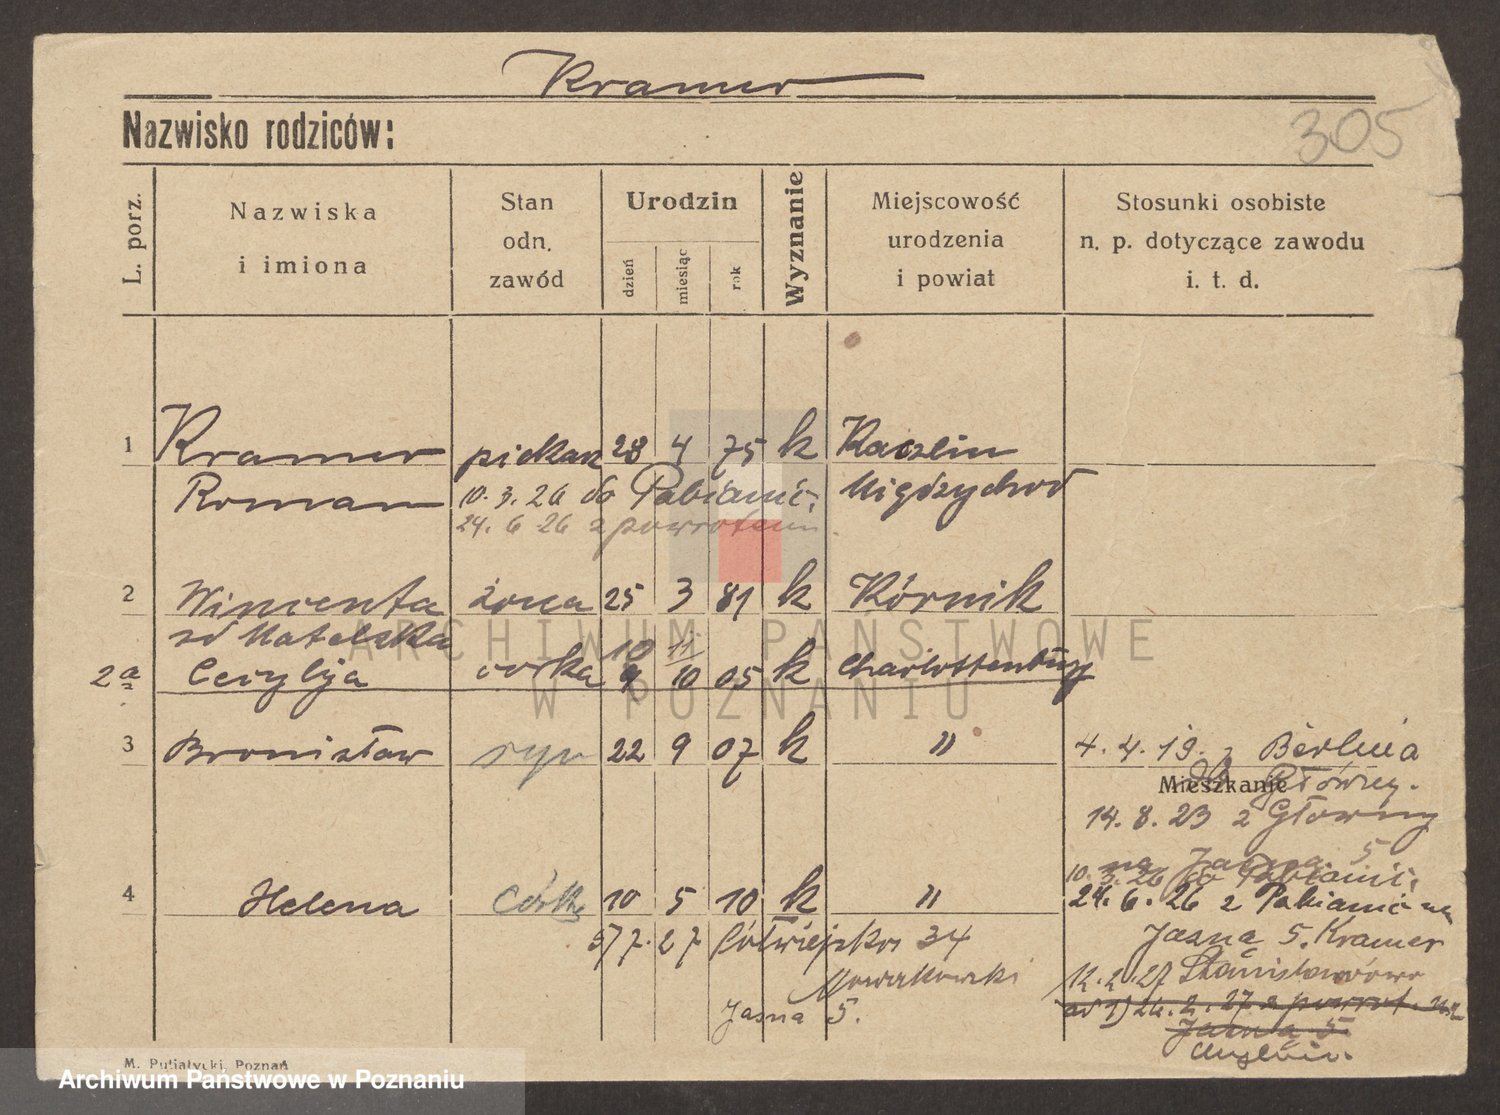 Kramer
Nazwisko rodziców:
305
L. porz.
Nazwiska
i imiona
Stan
odn.
zawód
Urodzin
dzień
miesiąc
rok
Wyznanie
Miejscowość
urodzenia
i powiat
Stosunki osobiste
n. p. dotyczące zawodu
i. t. d.
1 Kramer piekarz 28 4 75 k Kaczlin
Roman 10. 3. 26 do Pabianic; Międzychod
24. 6 26 z powrotem
2 Wincenta żona 25 3 81 k Kórnik
zd Matelska 10 11
2a Cecylja córka 9 10 05 k Charlottenburg
3 Bronisław syn 22 9 07 k " 4. 4. 19. z Berlina
Mieszkanie
do Główny.
14. 8. 23 z Główny
na Jasna 5
10. 3. 26 do Pabianic;
4 Helena córka 10 5 10 k " 24. 6. 26 z Pabianic na
5/7. 27 Półwiejska 34 Jasna 5. Kramer
Nowakowski 12. 2. 27 Stanisławowo
Jasna 5. ad 1) 24. 2. 27 z powrot. na
Jasna 5
M. Putiatycki, Poznań
ARCHIWUM PAŃSTWOWE
W POZNANIU
Archiwum Państwowe w Poznaniu